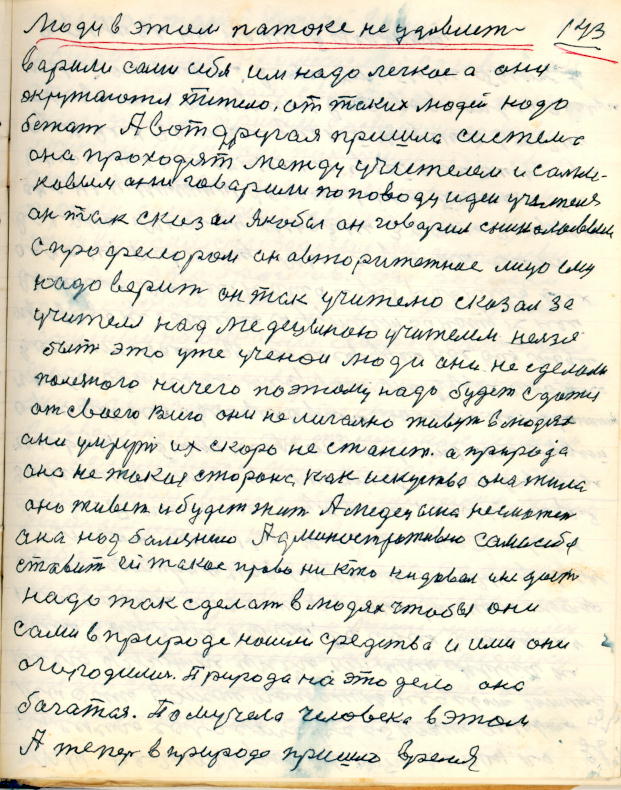 Люди в этом патоке не удовлет- 143
варили сами себя им надо легкое а они
окружаются тяжело, от таких людей надо
бежат А вот другая пришла система
она проходят между учителем и
они говарили по поводу идеи учителя
он так сказал якобы он говарил
с професором он авторитетное лицо ему
надо верит он так учителю сказал за
учителя над медецыною учителем нелзя
быт это уже ученои люди они не сделали
ничего поэтому надо будет
от своего они не легално живут в людях
они умрут их скоро не станет. а природа
она не такая сторона, как искуства она жила
она живет и будет жит А медецына несможет
она над болезнию Админостротивно сама себя
ставит ей такое право никто недовал и не даст
надо так сделат в людях чтобы они
сами в природе нашли средства и ими они
огородились. Природа на это дело она
багатая. Помучела человека в этом
А тепер в природе пришло время